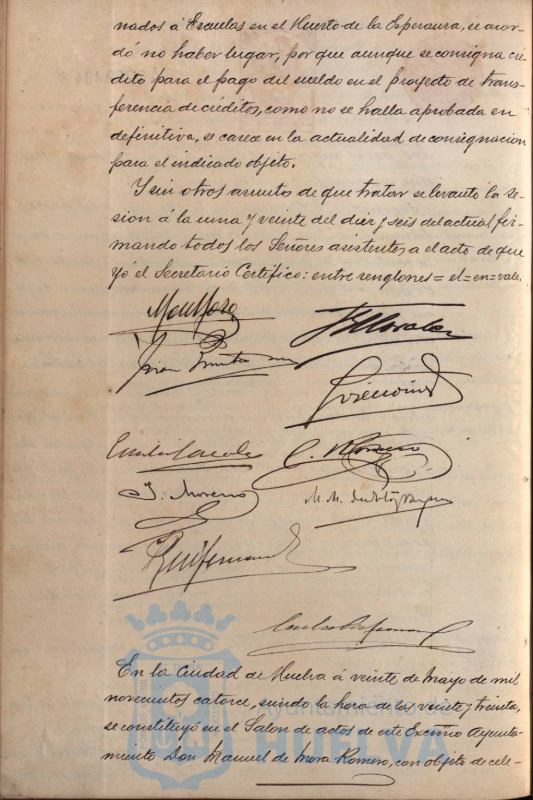 nados á Escuelas en el Huerto de la Esperanza, se acor-
dó no haber lugar, por que aunque se consigna cré
dito para el pago del sueldo en el proyecto de trans-
ferencia de créditos, como no se halla aprobada en
definitiva, se carece en la actualidad de consignacion
para el indicado objeto.
Y sin otros asuntos de que tratar se levantó la se-
sion á la una y veinte del diez y seis del actual fir-
mando todos los Señores asistentes a el acto de que
yó el Secretario Certifico: entre renglones = el = en = vale.
J. Moreno
C. Romero
En la Ciudad de Huelva á veinte de Mayo de mil
novecientos catorce, siendo la hora de las veinte y treinta,
se constituyó en el Salon de actos de este Excmo Ayunta-
miento Don Manuel de Mora Romero, con objeto de cele-
Ayuntamiento de
HUELVA